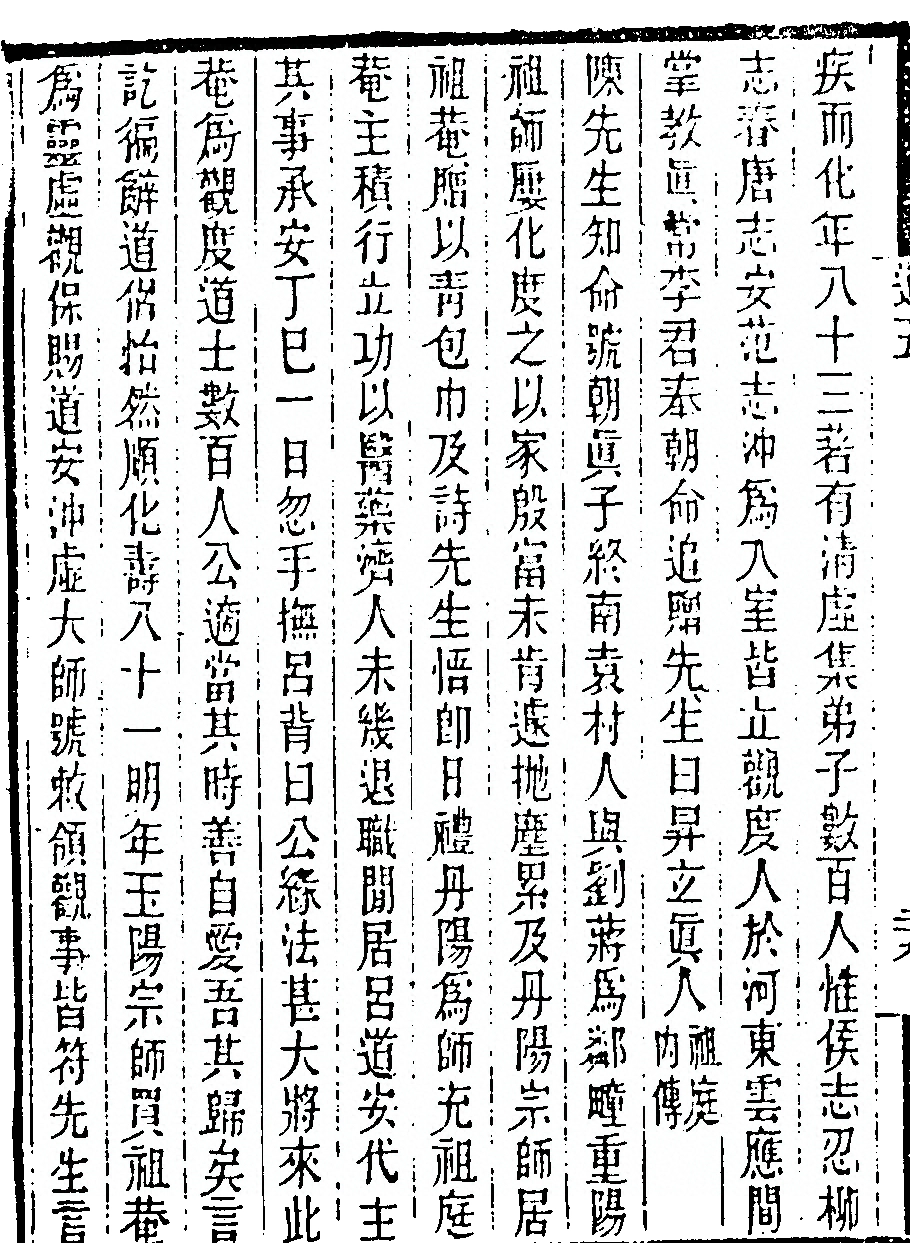 疾而化年八十三著有清虛集弟子數百人惟侯志忍柳
志春唐志安范志沖爲入室皆立觀度人於河東雲應間
掌教眞常李君奉朝命追贈先生曰昇立眞人祖庭內傳
陳先生知命號朝眞子終南袁村人與劉蔣爲鄰疃重陽
祖師屢化度之以家殷富未肯遽拋塵累及丹陽宗師居
祖菴贈以靑包巾及詩先生悟卽日禮丹陽爲師充祖庭
菴主積行立功以醫藥濟人未幾退職閒居呂道安代主
其事承安丁巳一日忽手撫呂背曰公緣法甚大將來此
菴爲觀度道士數百人公適當其時善自愛吾其歸矣言
訖徧辭道侶怡然順化壽八十一明年玉陽宗師買祖菴
爲靈虛觀保賜道安沖虛大師號敕領觀事皆符先生言